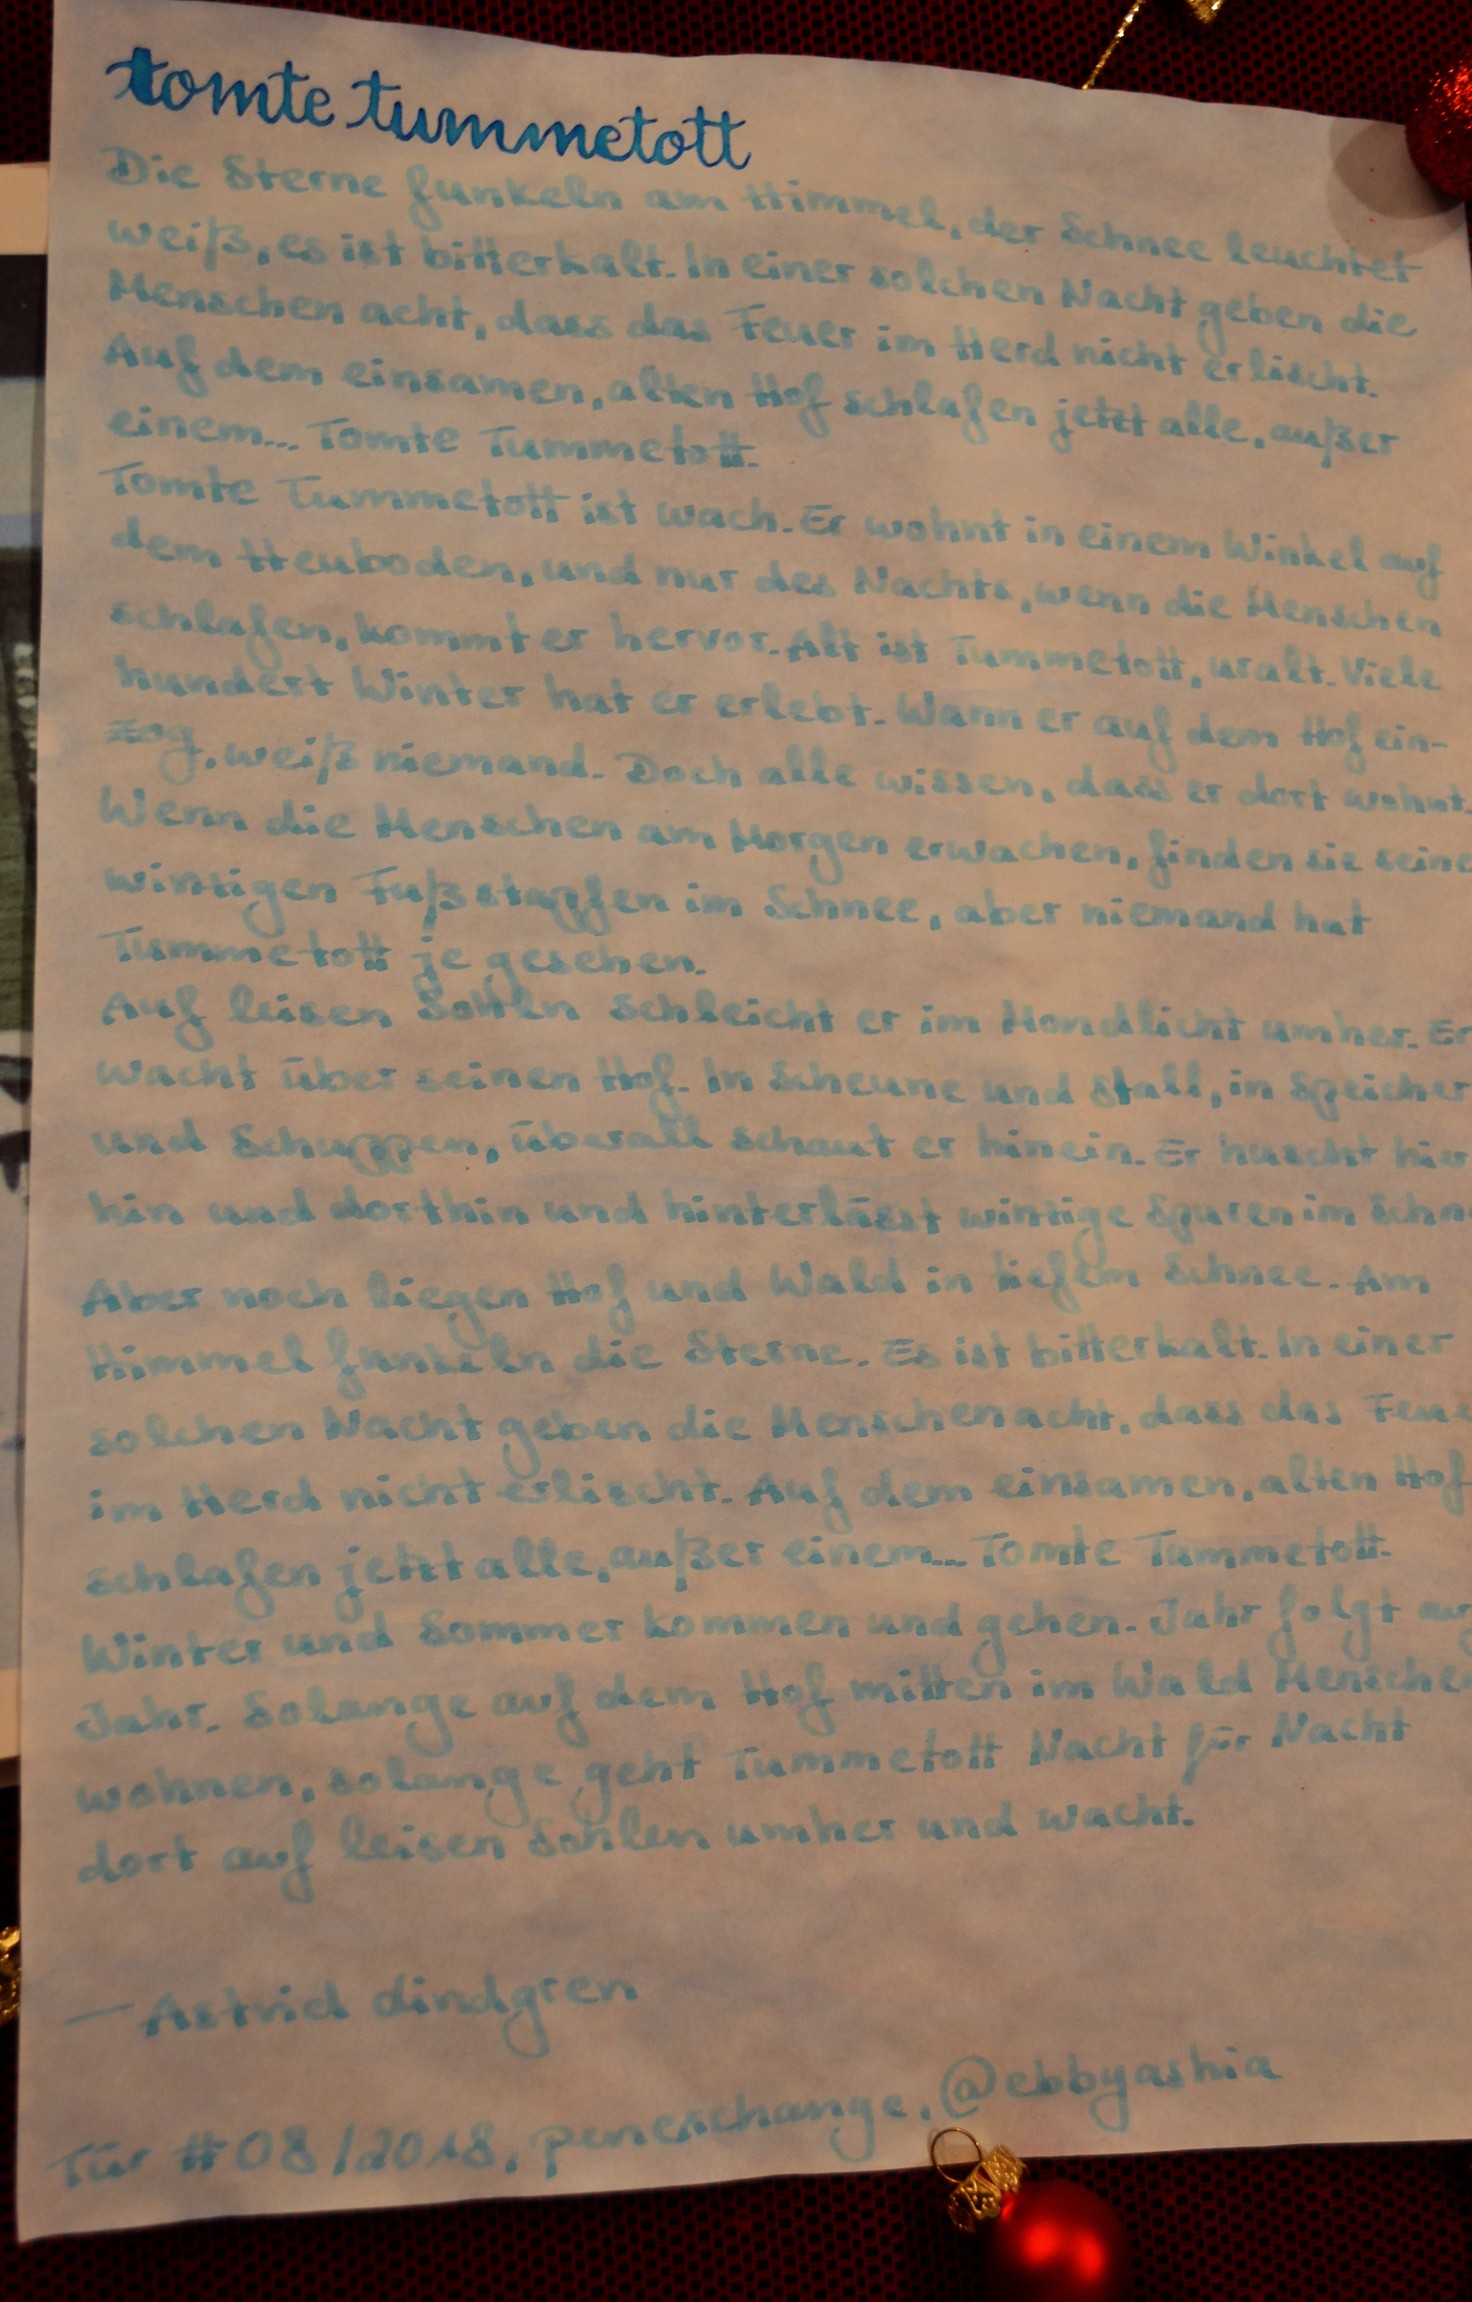 tomte tummetott
Die Sterne funkeln am Himmel, der Schnee leuchtet
weiß, es ist bitterkalt. In einer solchen Nacht geben die
Menschen acht, dass das Feuer im Herd nicht erlischt.
Auf dem einsamen, alten Hof schlafen jetzt alle, außer
einem... Tomte Tummetott.
Tomte Tummetott ist wach. Er wohnt in einem Winkel auf
dem Heuboden, und nur des Nachts, wenn die Menschen
schlafen, kommt er hervor. Alt ist Tummetott, uralt. Viele
hundert Winter hat er erlebt. Wann er auf dem Hof ein-
zog, weiß niemand. Doch alle wissen, dass er dort wohnt.
Wenn die Menschen am Morgen erwachen, finden sie seine
winzigen Fußstapfen im Schnee, aber niemand hat
Tummetott je gesehen.
Auf leisen Sohlen schleicht er im Mondlicht umher. Er
wacht über seinen Hof. In Scheune und Stall, in Speicher
und Schuppen, überall schaut er hinein. Er huscht hier
hin und dorthin und hinterlässt winzige Spuren im Schn
Aber noch liegen Hof und Wald in tiefem Schnee. Am
Himmel funkeln die Sterne. Es ist bitterkalt. In einer
solchen Nacht geben die Menschen acht, dass das Feue
im Herd nicht erlischt. Auf dem einsamen, alten Hof
schlafen jetzt alle, außer einem... Tomte Tummetott.
Winter und Sommer kommen und gehen. Jahr folgt auf
Jahr. Solange auf dem Hof mitten im Wald Menschen
wohnen, solange geht Tummetott Nacht für Nacht
dort auf leisen Sohlen umher und wacht.
— Astrid Lindgren
Tür #08/2018, penexchange, @ebbyashia